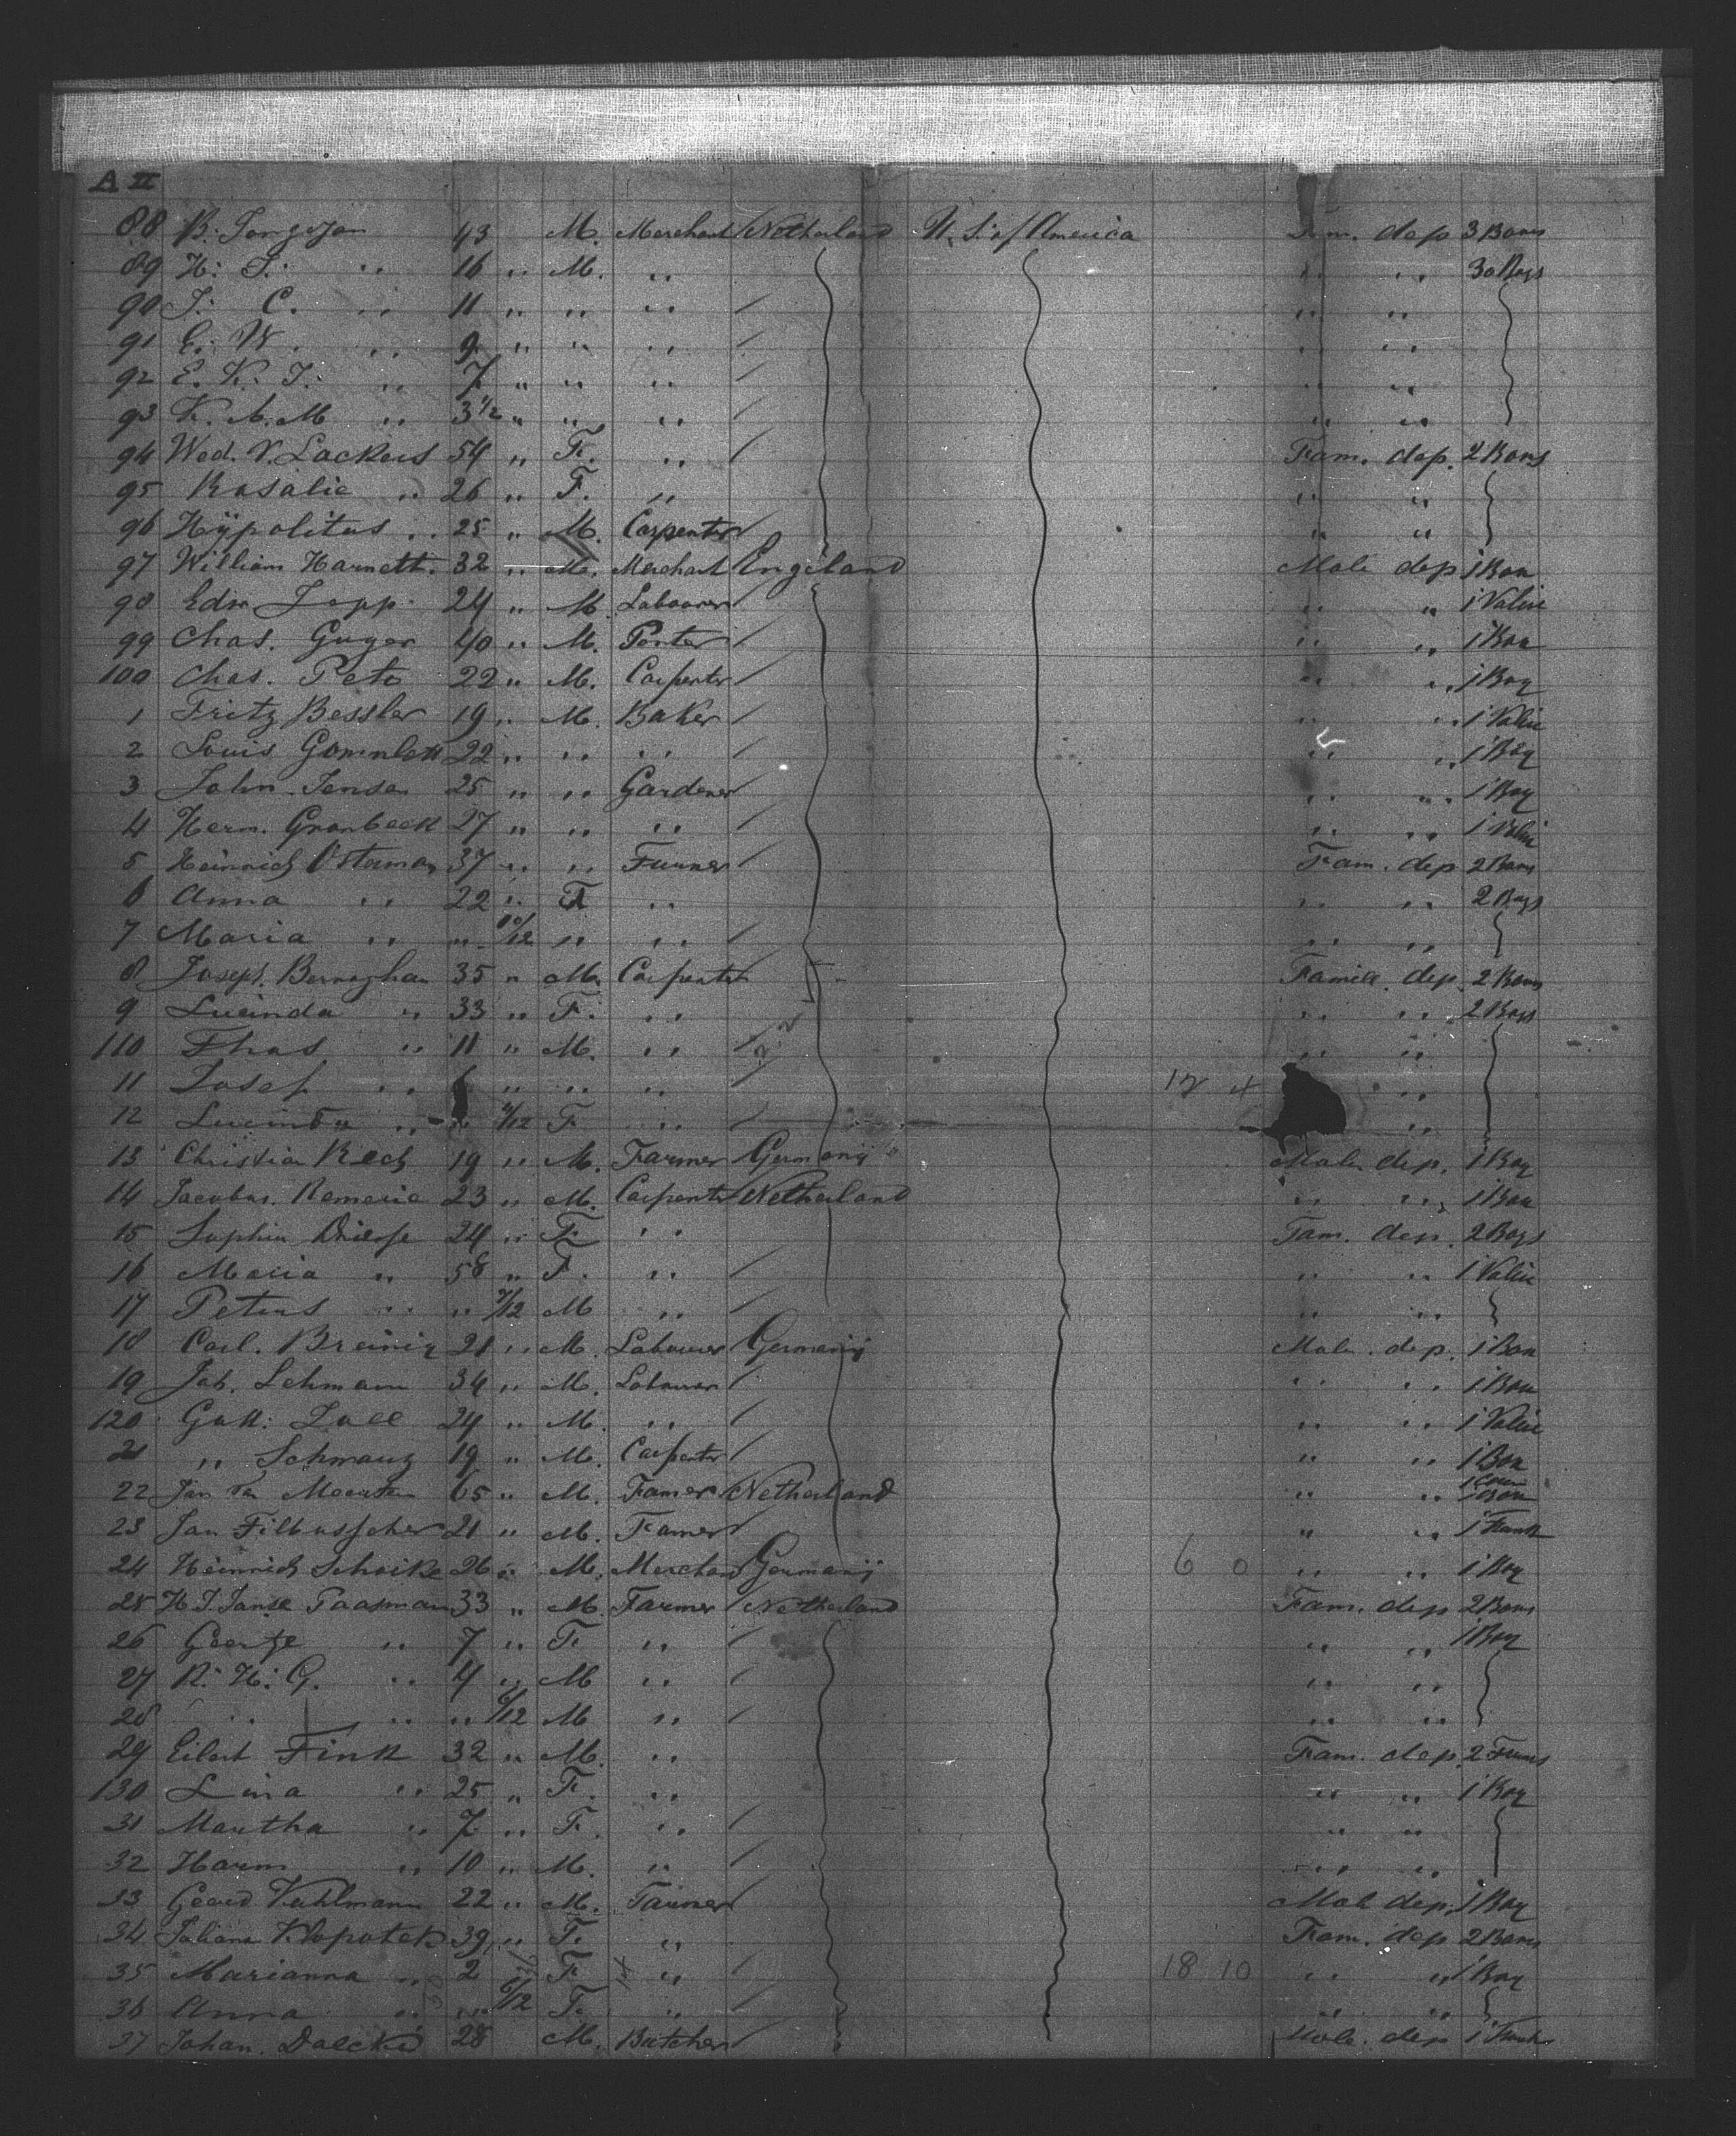 A II
88 B. Jongejan 43 M. Merchant Netherland U. S. of America Fam. dep 3 Boxes
89 H: J: " 16 " M. " " " 30 Bags
90 J: C. " 11 " " " " "
91 E. W. " 9 " " " " "
92 E. K: J: " 7 " " " " "
93 K. A. M " 3 1/2 " " " " "
94 Wed. V. Lackers 54 " F. " Fam. dep. 2 Boxes
95 Rosalie " 26 " F. " " "
96 Hÿpolitus " 25 " M. Carpenter " "
97 William Harnett. 32 " M. Merchant Engeland Male dep 1 Box
98 Edw Jopp 24 " M Labourer " " 1 Valise
99 Chas. Guyer 40 " M. Porter " " 1 Box
100 Chas. Peto 22 " M. Carpenter " " 1 Bag
1 Fritz Bessler 19 " M. Baker " " 1 Valise
2 Louis 22 " " " " " 1 Bag
3 John Jensen 25 " " Gardener " " 1 Bag
4 Herm. Gronbeck 27 " " " " " 1 Valise
5 Heinrich Osterman 37 " " Fam. dep 2 Boxes
6 Anna " 22 " F " " " 2 Bags
7 Maria " " 10/12 " " " "
8 Joseph Bernaghan 35 " M. Carpenter Famiel. dep. 2 Boxes
9 Lucinda " 33 " F. " " " 2 Bags
110 Thos " 11 " M. " " "
11 Josef " 6 " " " 12 4 "
12 Lucinda " /12 F " "
13 Christian Rech 19 " M. Farmer Germanij Male dep. 1 Bag
14 Jacobus. Remerie 23 " M. Carpenter Netherland " " 1 Box
15 Sophia 24 " F. " Fam. dep. 2 Bags
16 Maria " 58 " F. " " " 1 Valise
17 Petrus " " /12 M " " "
18 Carl. Breinig 21 " M. Labourer Germanij Male dep. 1 Box
19 Joh. Lehmann 34 " M. Labourer " " 1 Box
120 Gott: Zoll 24 " M. " " " 1 Valise
21 " Schwanz 19 " M. Carpenter " " 1 Box
22 Jan Ter Meersten 65 " M. Famer Netherland " " 1 Box
23 Jan Filbusscher 21 " M. Famer " " 1 Trunk
24 Heinrich Schoike 26 " M. Merchant Germanij 6 0 " " 1 Bag
25 H J. Janse Paasman 33 " M. Farmer Netherland Fam. dep 2 Boxes
26 Geertje " 7 " F. " " " 1 Bag
27 R. H: G. " 4 " M " " "
28 " " " 6/12 M " " "
29 Eilert Fink 32 " M. " Fam. dep 2
130 Lina " 25 " F. " " " 1 Bag
31 Martha " 7 " F. " " "
32 Harm " 10 " M. " " "
33 Geerd Kuhlmann 22 " M. Farmer Male dep. 1 Bag
34 Juliana Klopotek 39 " F. " Fam. dep 2 Boxes
35 Marianna " 2 F " 18 10 " " 1 Bag
36 Anna " " 6/12 F. " " "
37 Johan. Dalcke 28 M. Butcher Male. dep 1 Trunk